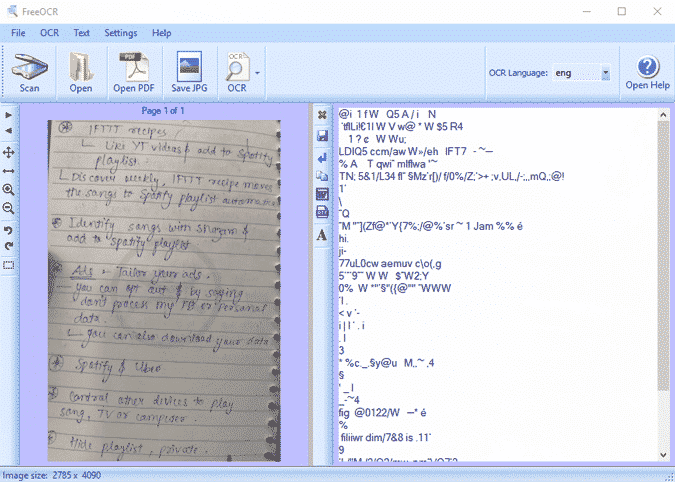 FreeOCR
File OCR Text Settings Help
Scan Open Open PDF Save JPG OCR
OCR Language: eng
Open Help
Page 1 of 1
IFTTT recipes,
Like YT videos & add to spotify
playlist.
Discover weekly, IFTTT recipe moves
the songs to Spotify playlist automatica
Identify songs with shazam &
add to spotify playlist
Ads - Tailor your ads.
you can opt out & by saying
don't process my FB or Personal
data.
you can also download your data
Spotify & Uber
Control other devices to play
song, TV or
Hide playlist, private.
@i 1 f W Q5 A / i N
1 ? ¢ W Wu;
LDIQ5 ccm/aw W»/eh IFT7 - ~—
% A T qwi
1'
\
~Q
hi.
ji-
77uL0cw aemuv c\o(,g
'l .
< v '-
. l
3
* %c._.§y@u M,.~ .4
§
' _ l
_-~4
fig @0122/W —* é
%
filiiwr dim/7&8 is .11`
9
Image size: 2785 x 4090